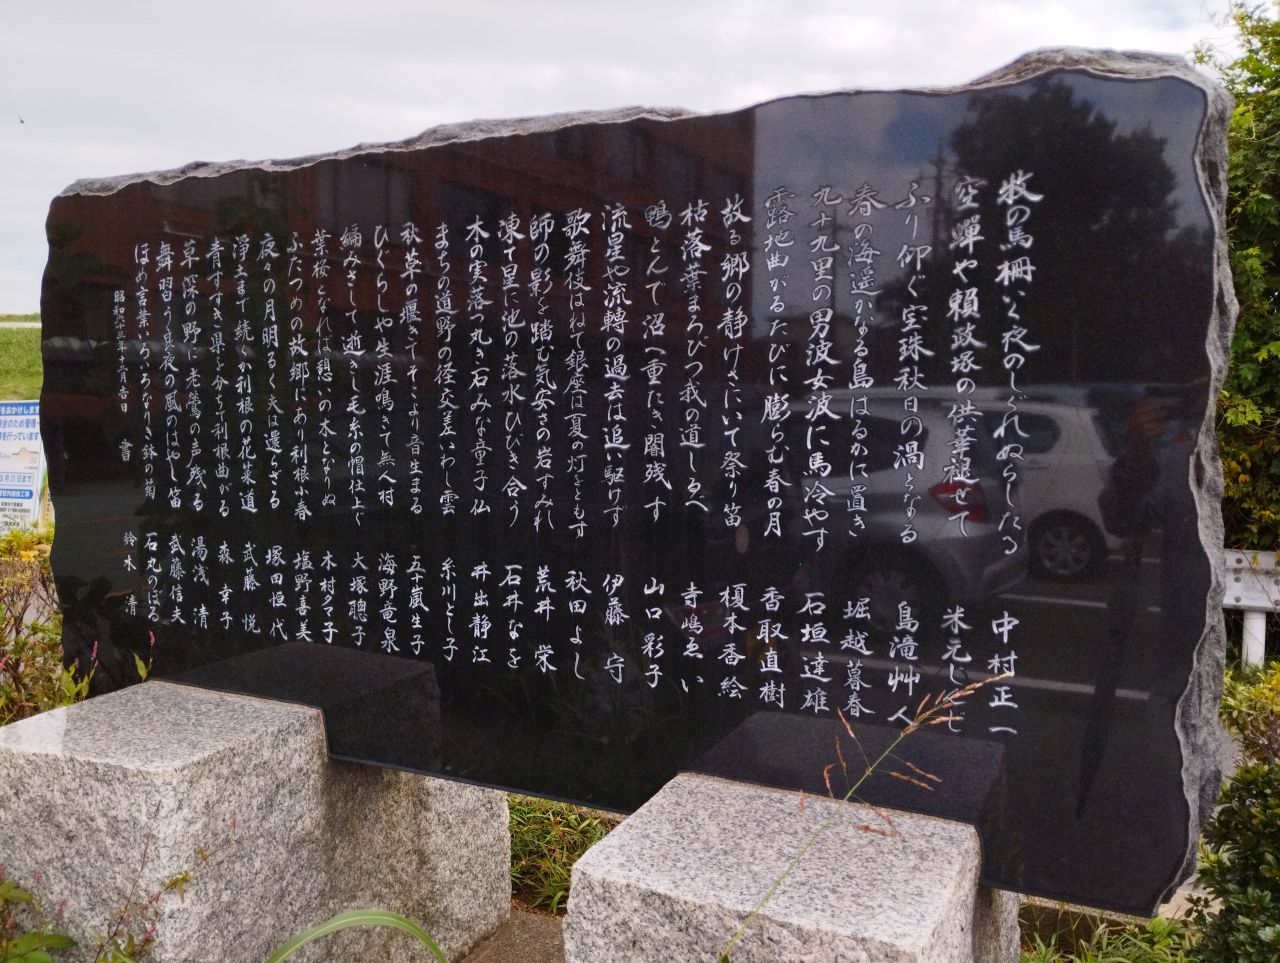 牧の馬柵いく夜のしぐれぬらしたる 中村正一
空蟬や頼政塚の供華褪せて 米元
ふり仰ぐ宝珠秋日の渦となる 島滝艸人
春の海遥かなる島はるかに置き 堀越暮春
九十九里の男波女波に馬冷やす 石垣達雄
露地曲がるたびに膨らむ春の月 香取直樹
故る郷の静けさにいて祭り笛 榎木香絵
枯落葉まろびつ我の道しるべ 寺嶋ゑい
鴨とんで沼へ重たき闇残す 山口彩子
流星や流轉の過去は追い駆けず 伊藤守
歌舞伎はねて銀座は夏の灯をともす 秋田よし
師の影を踏む気安さの岩すみれ 荒井栄
凍て星に池の落水ひびき合う 石井なを
木の実落つ丸き石みな童子仏 井出静江
まちの道野の径交差いわし雲 糸川とし子
秋草の堰きてそこより音生まる 五十嵐生子
ひぐらしや生涯鳴きて無人村 海野竜泉
編みさして逝きし毛糸の帽仕上ぐ 大塚聰子
葉桜となれば憩いの木となりぬ 木村タマ子
ふたつめの故郷にあり利根小春 塩野喜美
夜の月明るく夫は還らざる 塚田恒代
浄土まで続くか利根の花菜道 武藤悦
青すすき県を分ちて利根曲がる 森幸子
草深の野に老鶯の声残る 湯浅清
舞習う良夜の風のはやし笛 武藤信夫
ほめ言葉いろいろなりき鉢の菊 石丸のぼる
昭和六十三年十二月吉日 書 鈴木清